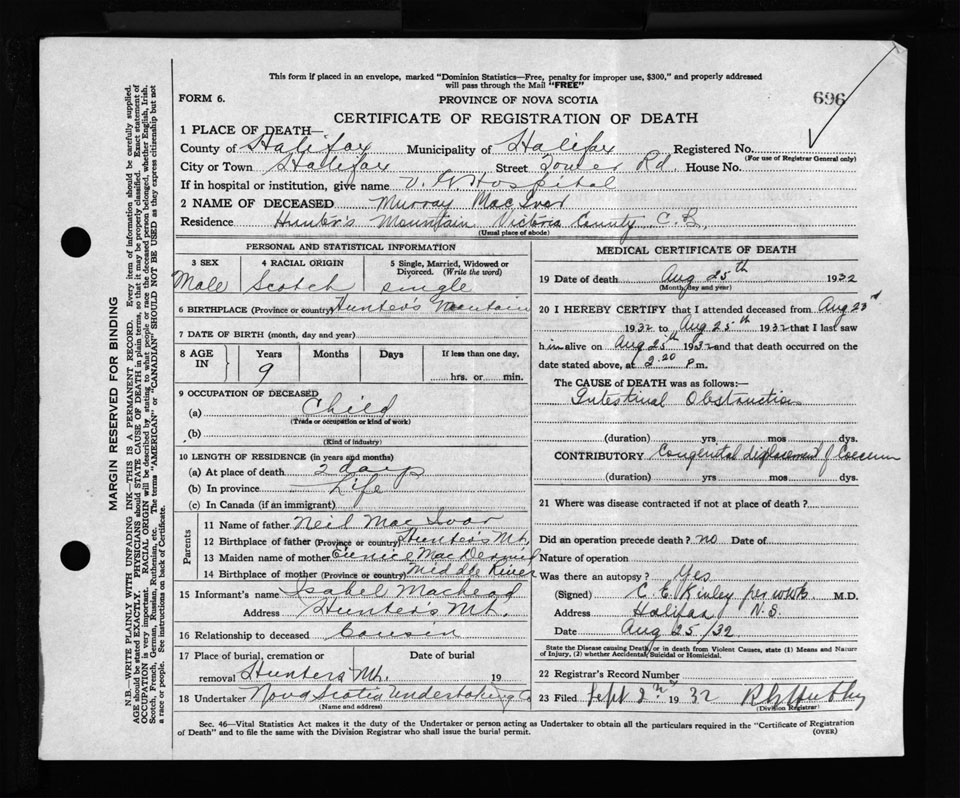 This form if placed in an envelope, marked "Dominion Statistics—Free, penalty for improper use, $300," and properly addressed
will pass through the Mail "FREE"
FORM 6.
PROVINCE OF NOVA SCOTIA
696
CERTIFICATE OF REGISTRATION OF DEATH
1 PLACE OF DEATH—
County of Halifax Municipality of Halifax Registered No.
(For use of Registrar General only)
City or Town Halifax Street Tower Rd. House No.
If in hospital or institution, give name V. G Hospital
2 NAME OF DECEASED Murray MacIvor
Residence Hunter's Mountain Victoria County C.B.
(Usual place of abode)
PERSONAL AND STATISTICAL INFORMATION
3 SEX 4 RACIAL ORIGIN 5 Single, Married, Widowed or Divorced. (Write the word)
Male Scotch single
6 BIRTHPLACE (Province or country) Hunter's Mountain
7 DATE OF BIRTH (month, day and year)
8 AGE IN Years Months Days If less than one day,
9 hrs. or min.
9 OCCUPATION OF DECEASED
(a) Child
(Trade or occupation or kind of work)
(b)
(Kind of industry)
10 LENGTH OF RESIDENCE (in years and months)
(a) At place of death 2 days
(b) In province Life
(c) In Canada (if an immigrant)
Parents
11 Name of father Neil Mac Ivor
12 Birthplace of father (Province or country) Hunter's Mt.
13 Maiden name of mother Eunice MacDermid
14 Birthplace of mother (Province or country) Middle River
15 Informant's name Isabel Machead
Address Hunter's Mt.
16 Relationship to deceased Cousin
17 Place of burial, cremation or removal Hunters Mt. Date of burial 19
18 Undertaker Nova Scotia Undertaking Co
(Name and address)
MEDICAL CERTIFICATE OF DEATH
19 Date of death Aug 25th 1932
(Month, day and year)
20 I HEREBY CERTIFY that I attended deceased from Aug 23rd
1932 to Aug 25th 1932 that I last saw
him alive on Aug 25th 1932 and that death occurred on the
date stated above, at 2.20 P m.
The CAUSE OF DEATH was as follows:—
Intestinal Obstruction
(duration) yrs mos dys.
CONTRIBUTORY Congenital displacement of Coecum
(duration) yrs. mos. dys.
21 Where was disease contracted if not at place of death?
Did an operation precede death? no Date of
Nature of operation
Was there an autopsy? Yes
(Signed) C. E. Kinley per M.D.
Address Halifax N.S.
Date Aug 25/32.
State the Disease Causing Death, or in death from Violent Causes, state (1) Means and Nature
of Injury, (2) whether Accidental, Suicidal or Homicidal.
22 Registrar's Record Number
23 Filed Sept 2nd 1932
(Division Registrar)
Sec. 46—Vital Statistics Act makes it the duty of the Undertaker or person acting as Undertaker to obtain all the particulars required in the "Certificate of Registration
of Death" and to file the same with the Division Registrar who shall issue the burial permit.
(OVER)
MARGIN RESERVED FOR BINDING
N.B.—WRITE PLAINLY WITH UNFADING INK—THIS IS A PERMANENT RECORD. Every item of information should be carefully supplied.
AGE should be stated EXACTLY. PHYSICIANS should STATE CAUSE OF DEATH in plain terms, so that it may be properly classified. Exact statement of
OCCUPATION is very important. RACIAL ORIGIN will be described by stating to what people or race the deceased person belonged, whether English, Irish,
Scotch, French, German, Russian, Ruthenian, etc. The terms "AMERICAN" or "CANADIAN" SHOULD NOT BE USED as they express citizenship but not
a race or people. See instructions on back of Certificate.